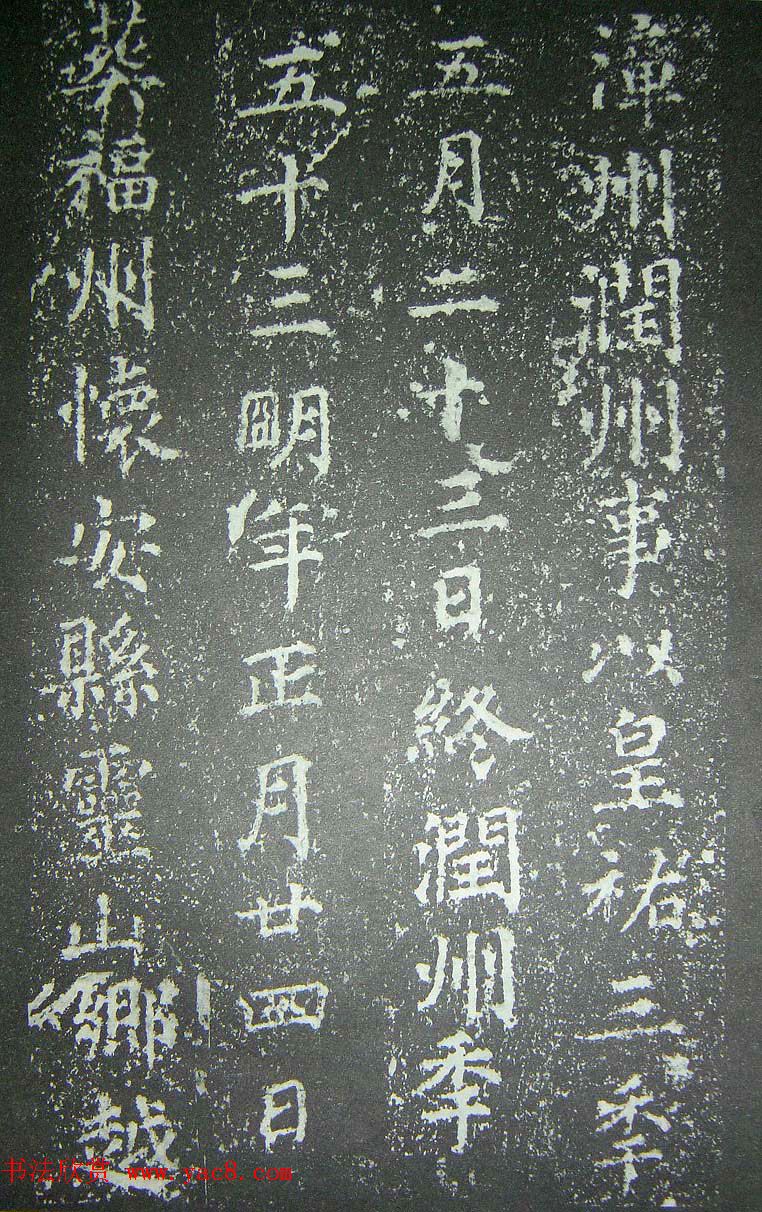 渾州潤州事以皇祐三季
五月二十三日終潤州季
五十三明年正月廿四日
葬福州懷安縣靈山鄉越
书法欣赏 www.yac8.com